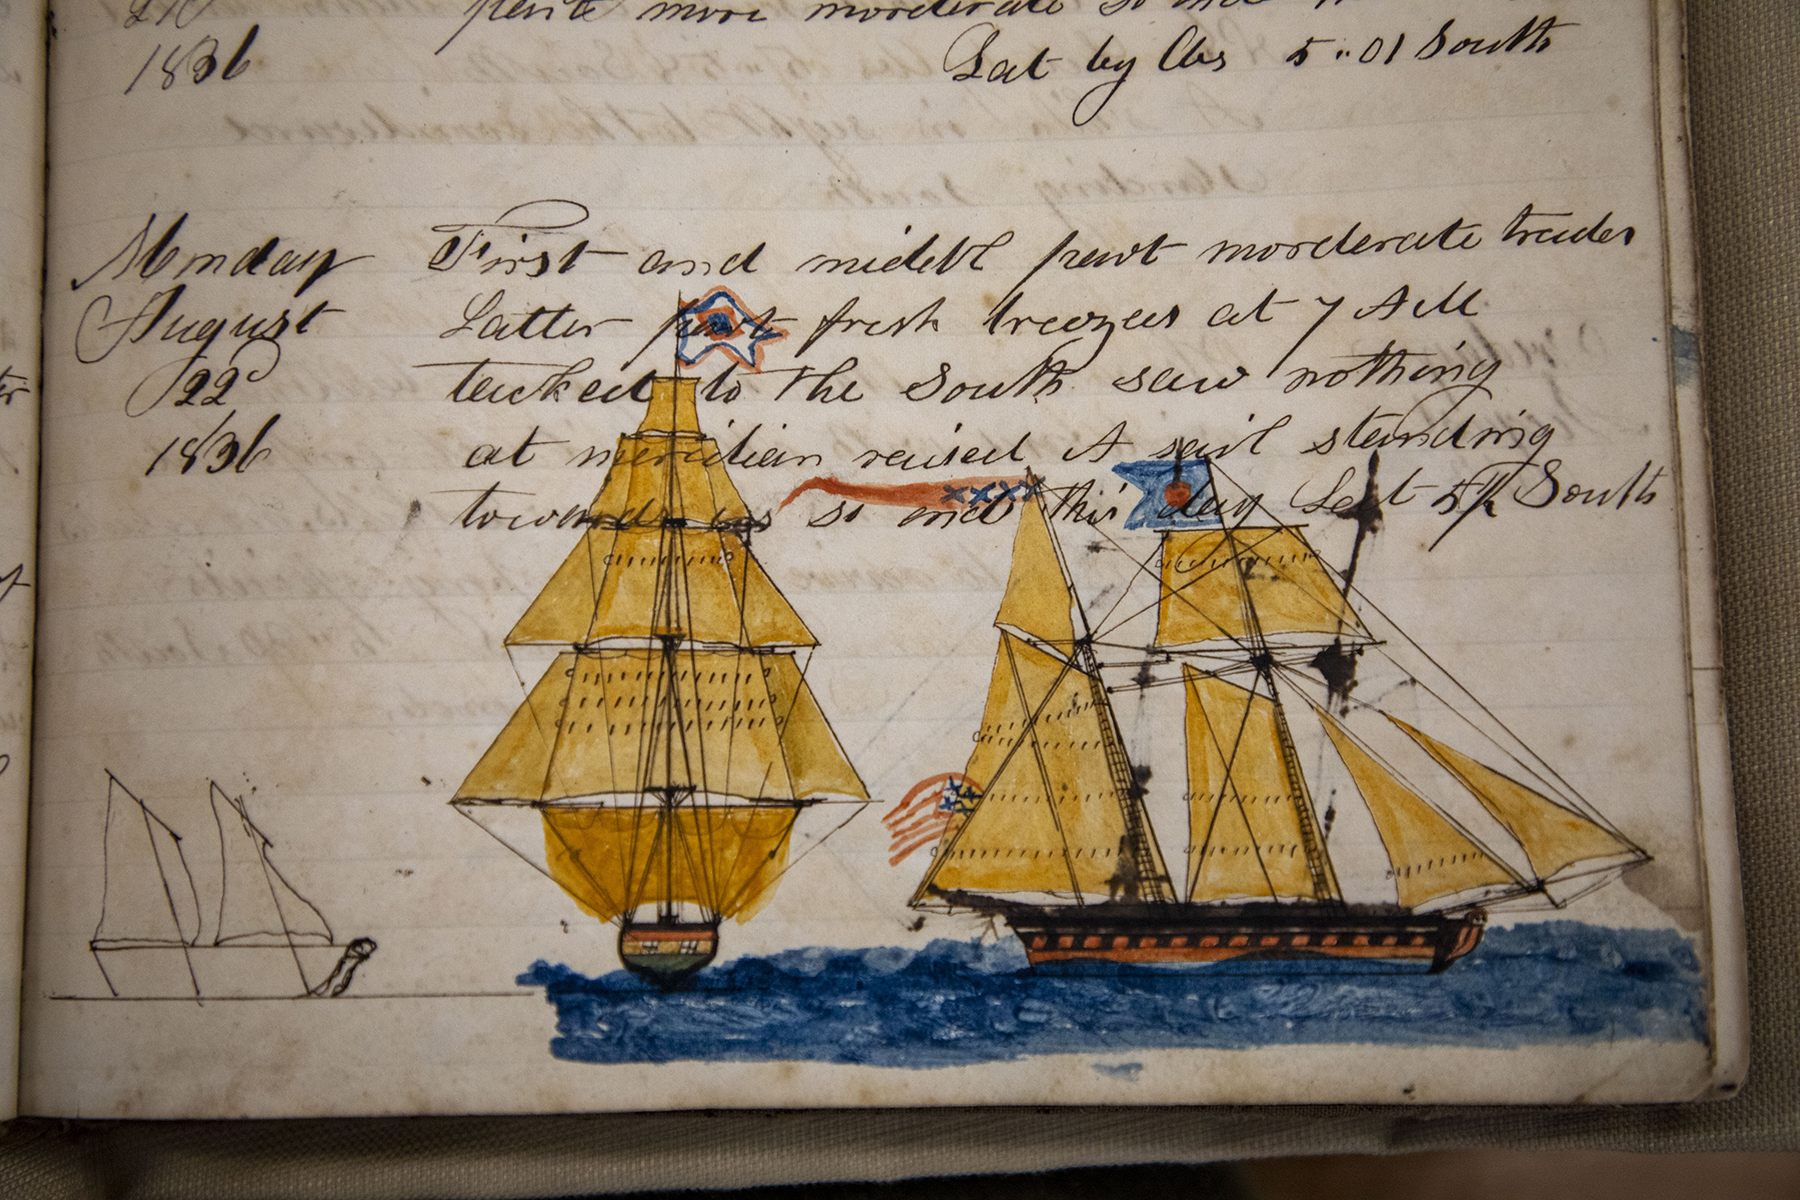 part more morderate so end
1836
Lat by Obs 5..01 South
Monday August 22d 1836
First and midell part morderate trades
Latter part fresh breezes at 7 AM
tacked to the South saw nothing
at meridian raised A sail standing
towards us so end this day Lat South